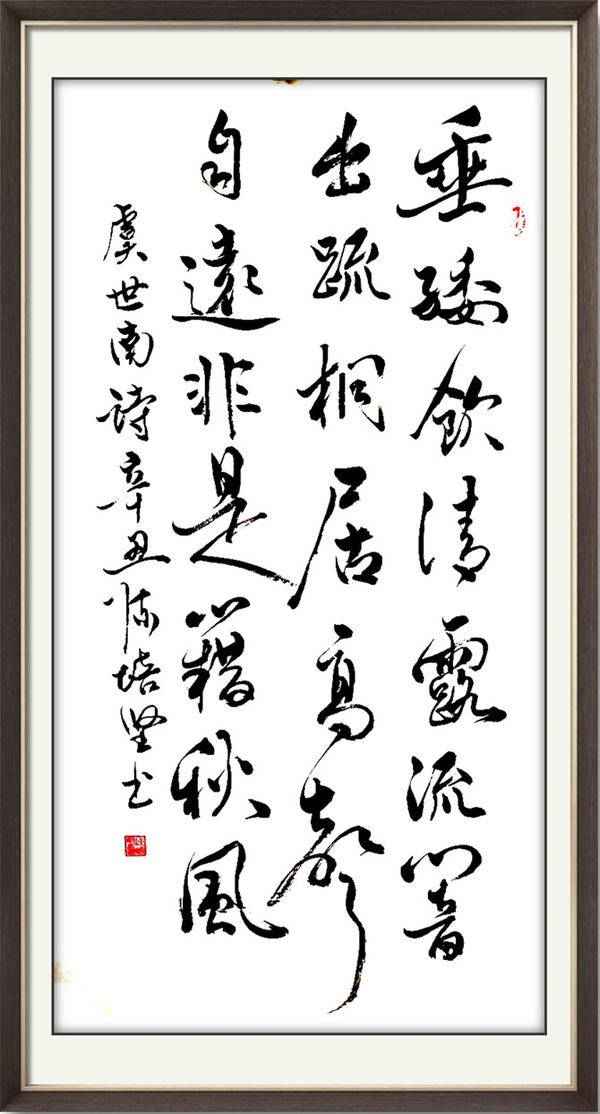 垂緌飲清露流響
出疏桐居高聲
自遠非是藉秋風
虞世南诗辛丑陈培坚书